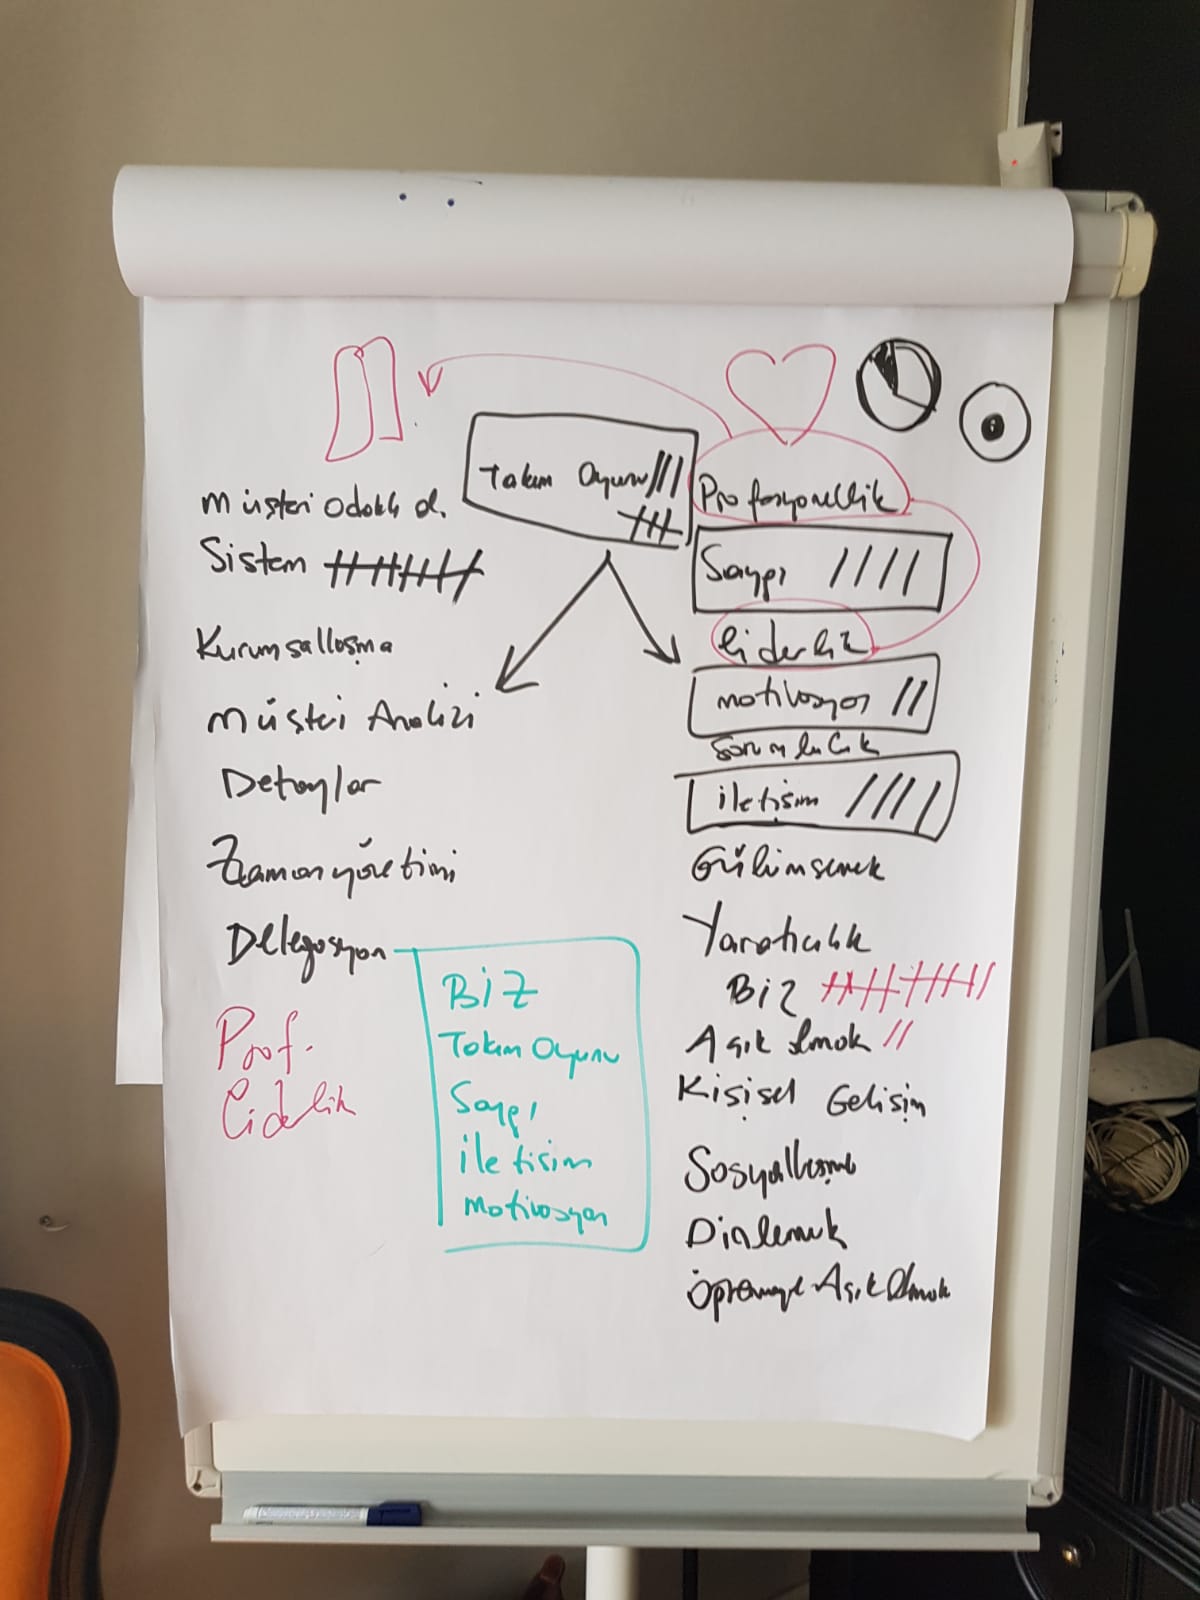 Takım Oyunu
Müşteri Odaklı d.
Sistem
Kurumsallaşma
Müşteri Analizi
Detaylar
Zaman yönetimi
Delegasyon
Prof.
Liderlik
BİZ
Takım Oyunu
Saygı
iletişim
motivasyon
Profosyonellik
Saygı
liderlik
motivasyon
Sorumluluk
iletişim
Gülümsemek
Yaratıcılık
BİZ
Açık olmak
Kişisel Gelişim
Sosyalleşme
Dinlemek
öğrenmeye Açık Olmak